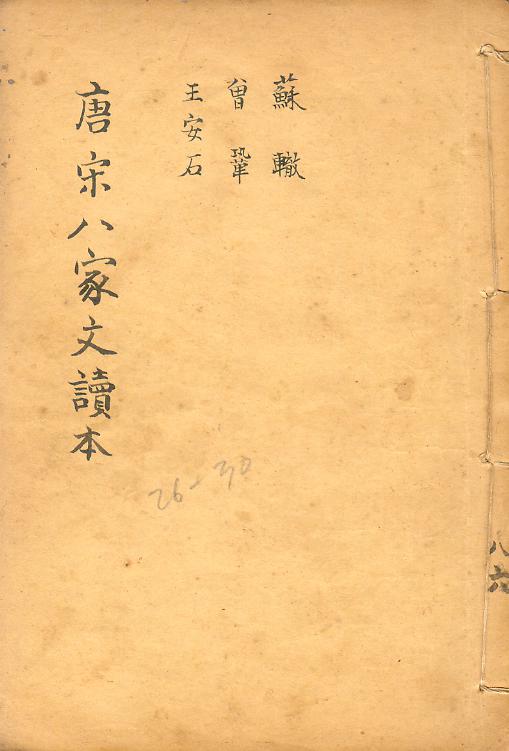 蘇轍
曾鞏
王安石
唐宋八家文讀本
26-30
八六